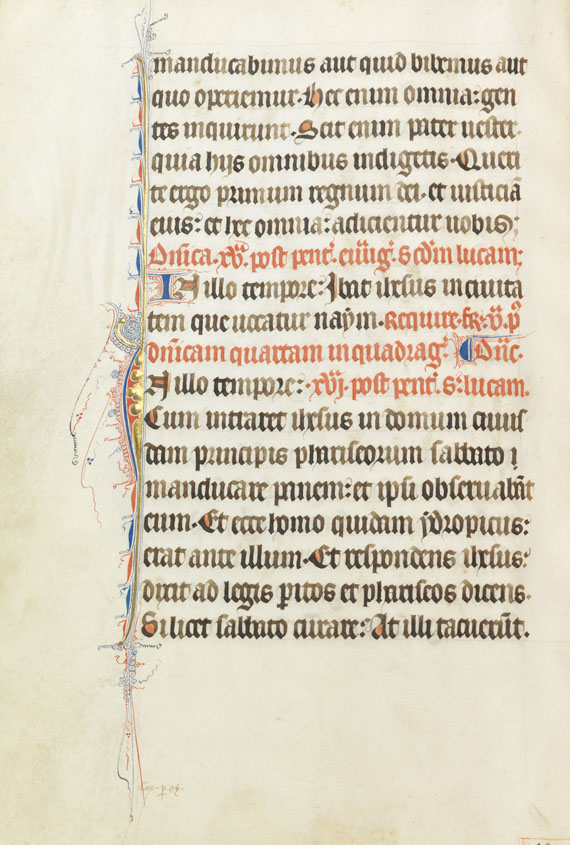 manducabimus aut quid bibemus aut
quo operiemur. Hec enim omnia: gen
tes inquirunt. Scit enim pater uester.
quia hijs omnibus indigetis. Queri
te ergo primum regnum dei. et iusticiã
eius: et hec omnia: adicientur uobis;
Dñica. xv. post pent. euãg. scdm lucam;
IN illo tempore: Ibat ihesus in ciuita
tem que uocatur naym. Require. fr. v. p
dñicam quartam in quadrag. Dñic.
IN illo tempore: xvj. post pent. s. lucam.
Cum intraret ihesus in domum cuius
dam principis phariseorum sabbato
manducare panem: et ipsi obseruabãt
eum. Et ecce homo quidam ydropicus:
erat ante illum. Et respondens ihesus:
dixit ad legis peritos et phariseos dicens.
Si licet sabbato curare: At illi tacuerũt.